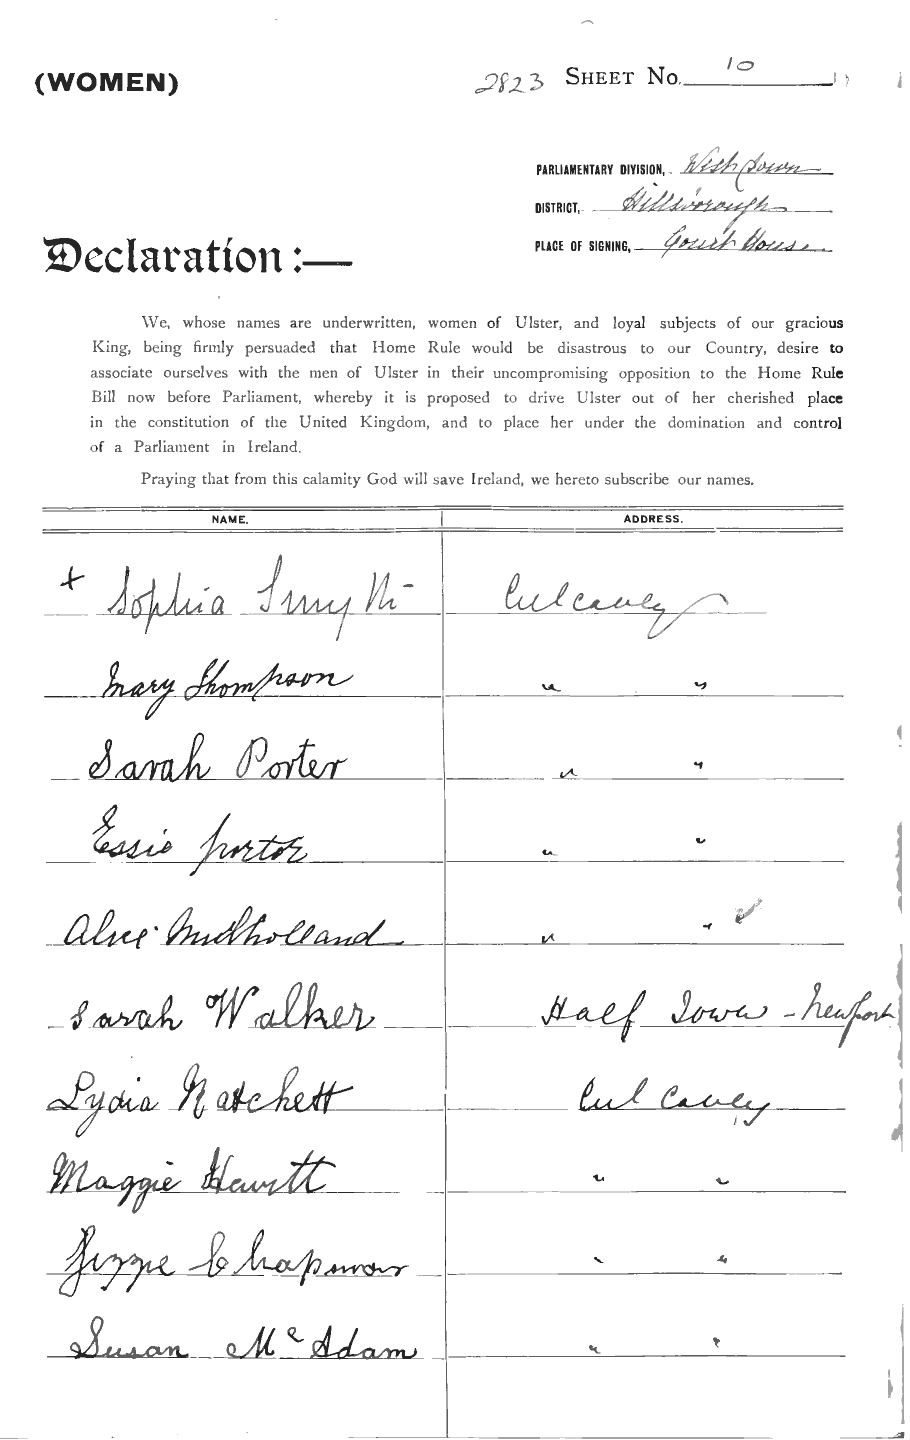 (WOMEN)
2823 SHEET No. 10
PARLIAMENTARY DIVISION, West Down
DISTRICT, Hillsborough
PLACE OF SIGNING, Court House
Declaration :—
We, whose names are underwritten, women of Ulster, and loyal subjects of our gracious
King, being firmly persuaded that Home Rule would be disastrous to our Country, desire to
associate ourselves with the men of Ulster in their uncompromising opposition to the Home Rule
Bill now before Parliament, whereby it is proposed to drive Ulster out of her cherished place
in the constitution of the United Kingdom, and to place her under the domination and control
of a Parliament in Ireland.
Praying that from this calamity God will save Ireland, we hereto subscribe our names.
NAME. ADDRESS.
+ Sophia Smyth Culcavey
Mary Thompson " "
Sarah Porter " "
Essie Porter " "
Alice Mulholland " "
Sarah Walker Half Town - Newport
Lydia Natchett Cul Cavey
Maggie Hewitt " "
Lizzie Chapman " "
Susan McAdam " "